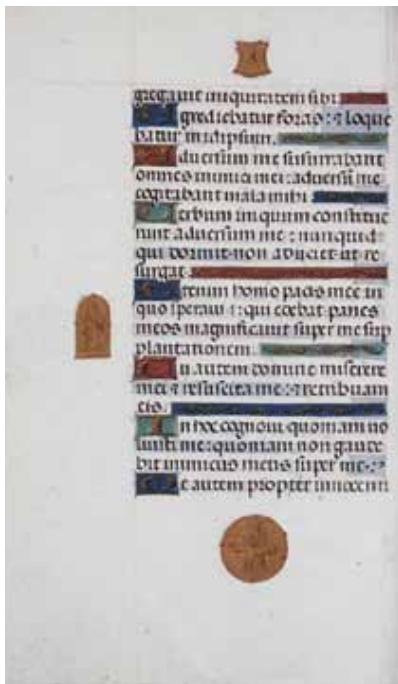 gregauit iniquitatem sibi
Egrediebatur foras: et loque
batur in idipsum.
Aduersum me susurrabant
omnes inimici mei: aduersu me
cogitabant mala mihi
Verbum iniquum constitue
runt aduersum me: nunquid
qui dormit non adiciet ut re
surgat
Etenim homo pacis mee in
quo speraui: qui edebat panes
meos magnificauit super me sup
plantationem.
Tu autem domine miserere
mei et resuscita me: et retribuam
eis.
In hoc cognoui quoniam uo
luisti me: quoniam non gaude
bit inimicus meus super me
Me autem propter innocenti